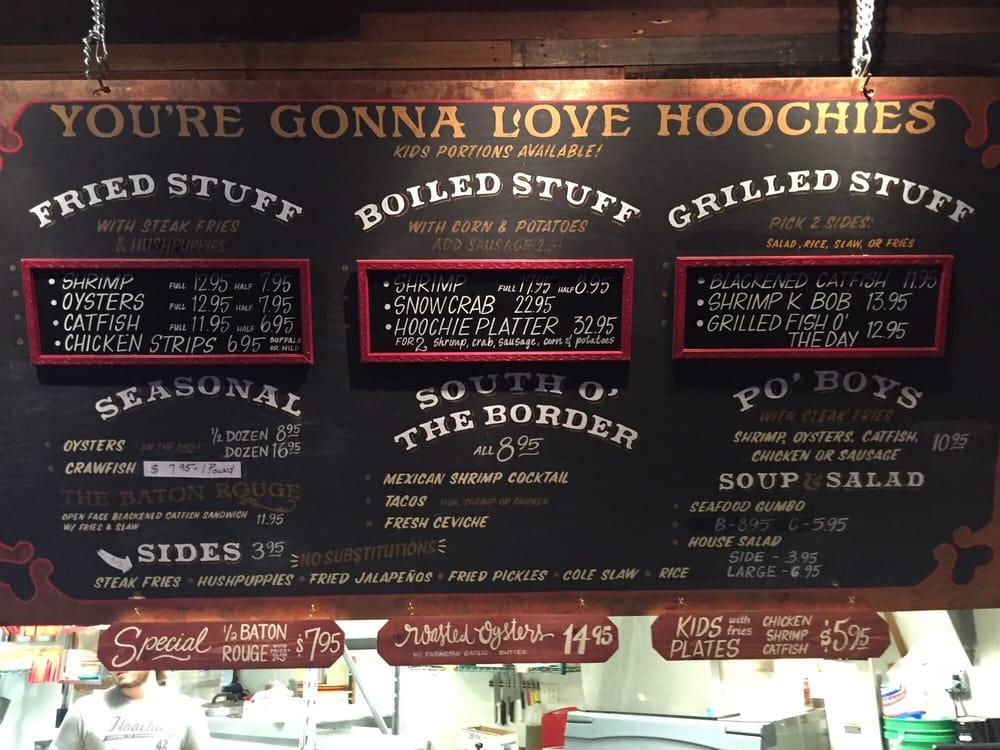 YOU'RE GONNA LOVE HOOCHIES
KIDS PORTIONS AVAILABLE!
FRIED STUFF
WITH STEAK FRIES
& HUSHPUPPIES
• SHRIMP FULL 12.95 HALF 7.95
• OYSTERS FULL 12.95 HALF 7.95
• CATFISH FULL 11.95 HALF 6.95
• CHICKEN STRIPS 6.95 BUFFALO OR MILD
BOILED STUFF
WITH CORN & POTATOES
ADD SAUSAGE
• SHRIMP FULL 17.95 HALF 8.95
• SNOWCRAB 22.95
• HOOCHIE PLATTER 32.95
FOR 2 shrimp, crab, sausage, corn & potatoes
GRILLED STUFF
PICK 2 SIDES:
SALAD, RICE, SLAW, OR FRIES
• BLACKENED CATFISH 11.95
• SHRIMP K BOB 13.95
• GRILLED FISH O'
THE DAY 12.95
SEASONAL
• OYSTERS ON THE SHELL 1/2 DOZEN 8.95
DOZEN 16.95
• CRAWFISH $ 7.95 / Pound
THE BATON ROUGE
OPEN FACE BLACKENED CATFISH SANDWICH
W/ FRIES & SLAW 11.95
SOUTH O'
THE BORDER
ALL 8.95
• MEXICAN SHRIMP COCKTAIL
• TACOS FISH, SHRIMP OR CHICKEN
• FRESH CEVICHE
PO' BOYS
WITH STEAK FRIES
SHRIMP, OYSTERS, CATFISH, 10.95
CHICKEN OR SAUSAGE
SOUP & SALAD
• SEAFOOD GUMBO
• B-8.95 C-5.95
• HOUSE SALAD
SIDE - 3.95
LARGE - 6.95
SIDES 3.95 NO SUBSTITUTIONS
STEAK FRIES • HUSHPUPPIES • FRIED JALAPEÑOS • FRIED PICKLES • COLE SLAW • RICE
Special 1/2 BATON ROUGE WITH FRIES $7.95
Roasted Oysters 14.95
W/ PARMESAN GARLIC BUTTER
KIDS PLATES with fries CHICKEN SHRIMP CATFISH $5.95
Hoochie
42